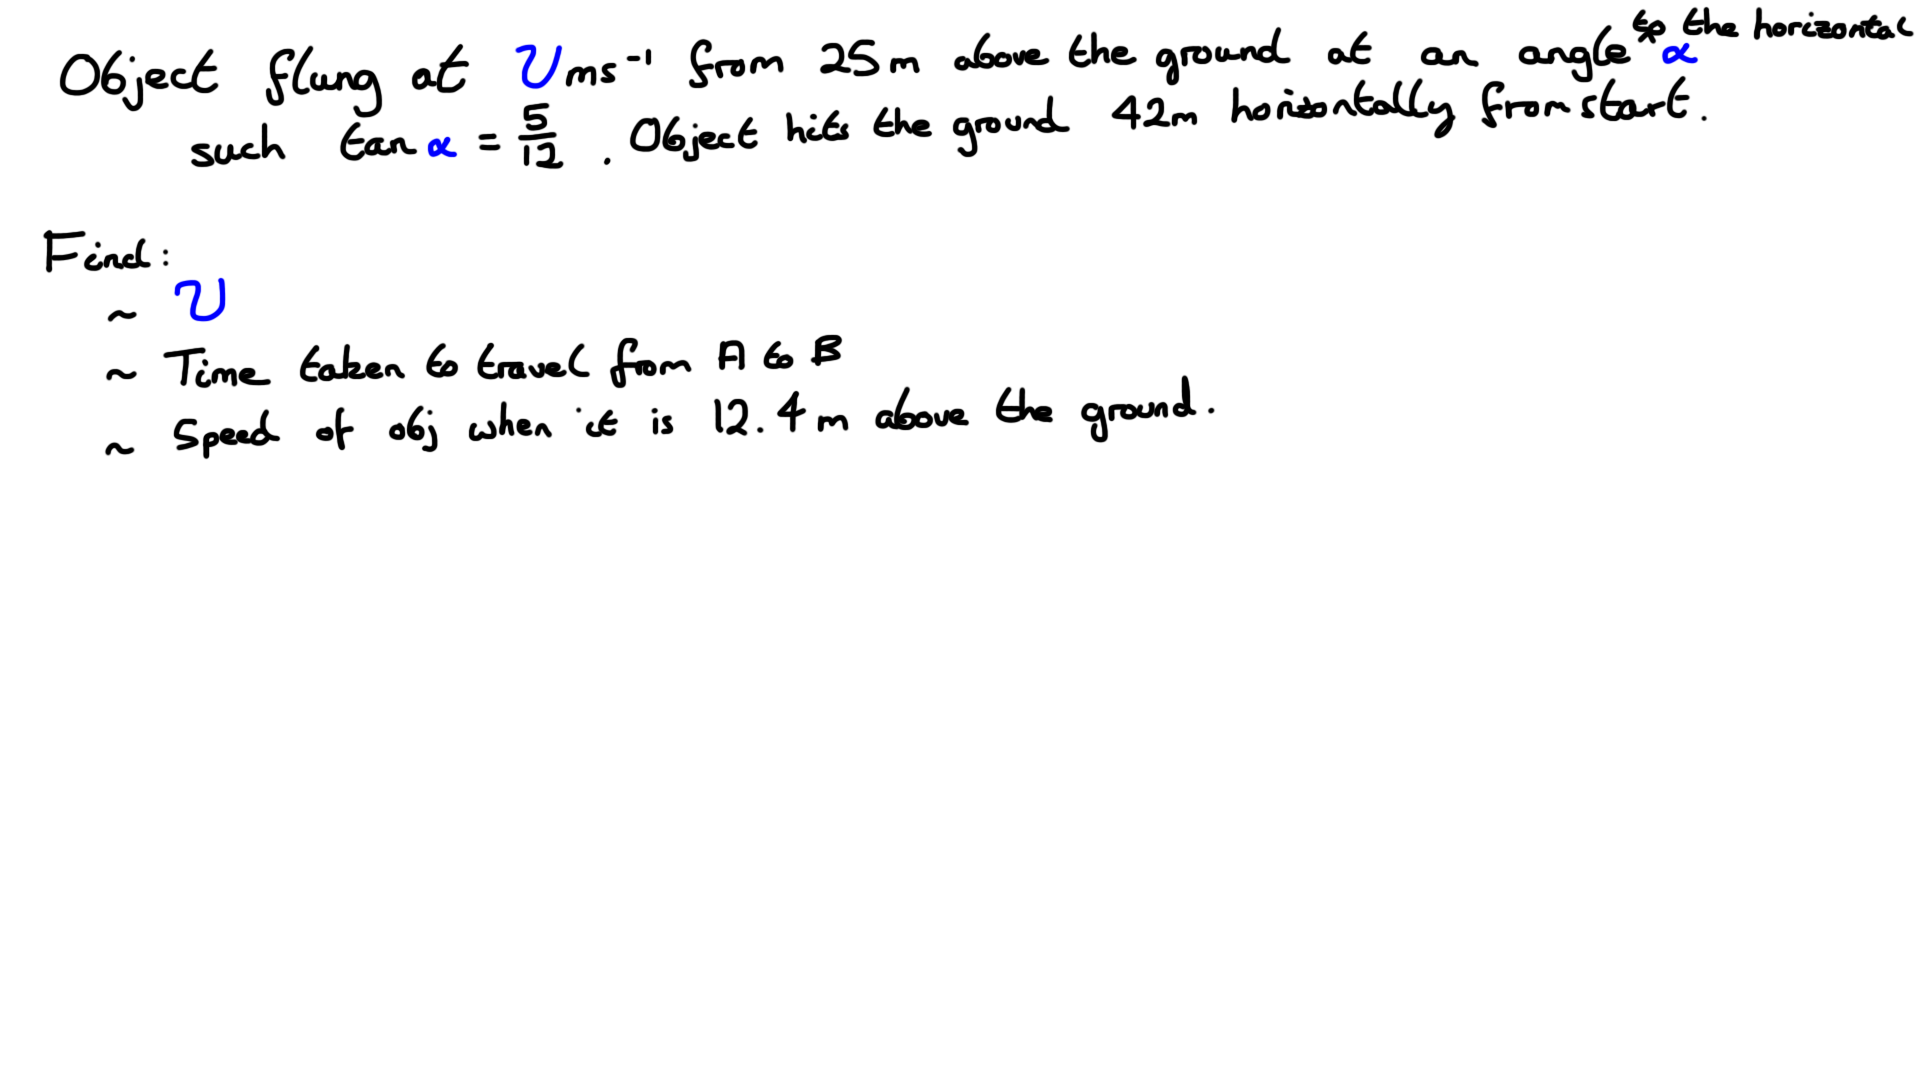 Object flung at U ms⁻¹ from 25m above the ground at an angle to the horizontal α
such tan α = 5/12 . Object hits the ground 42m horizontally from start.
Find:
~ U
~ Time taken to travel from A to B
~ Speed of obj when it is 12.4m above the ground.